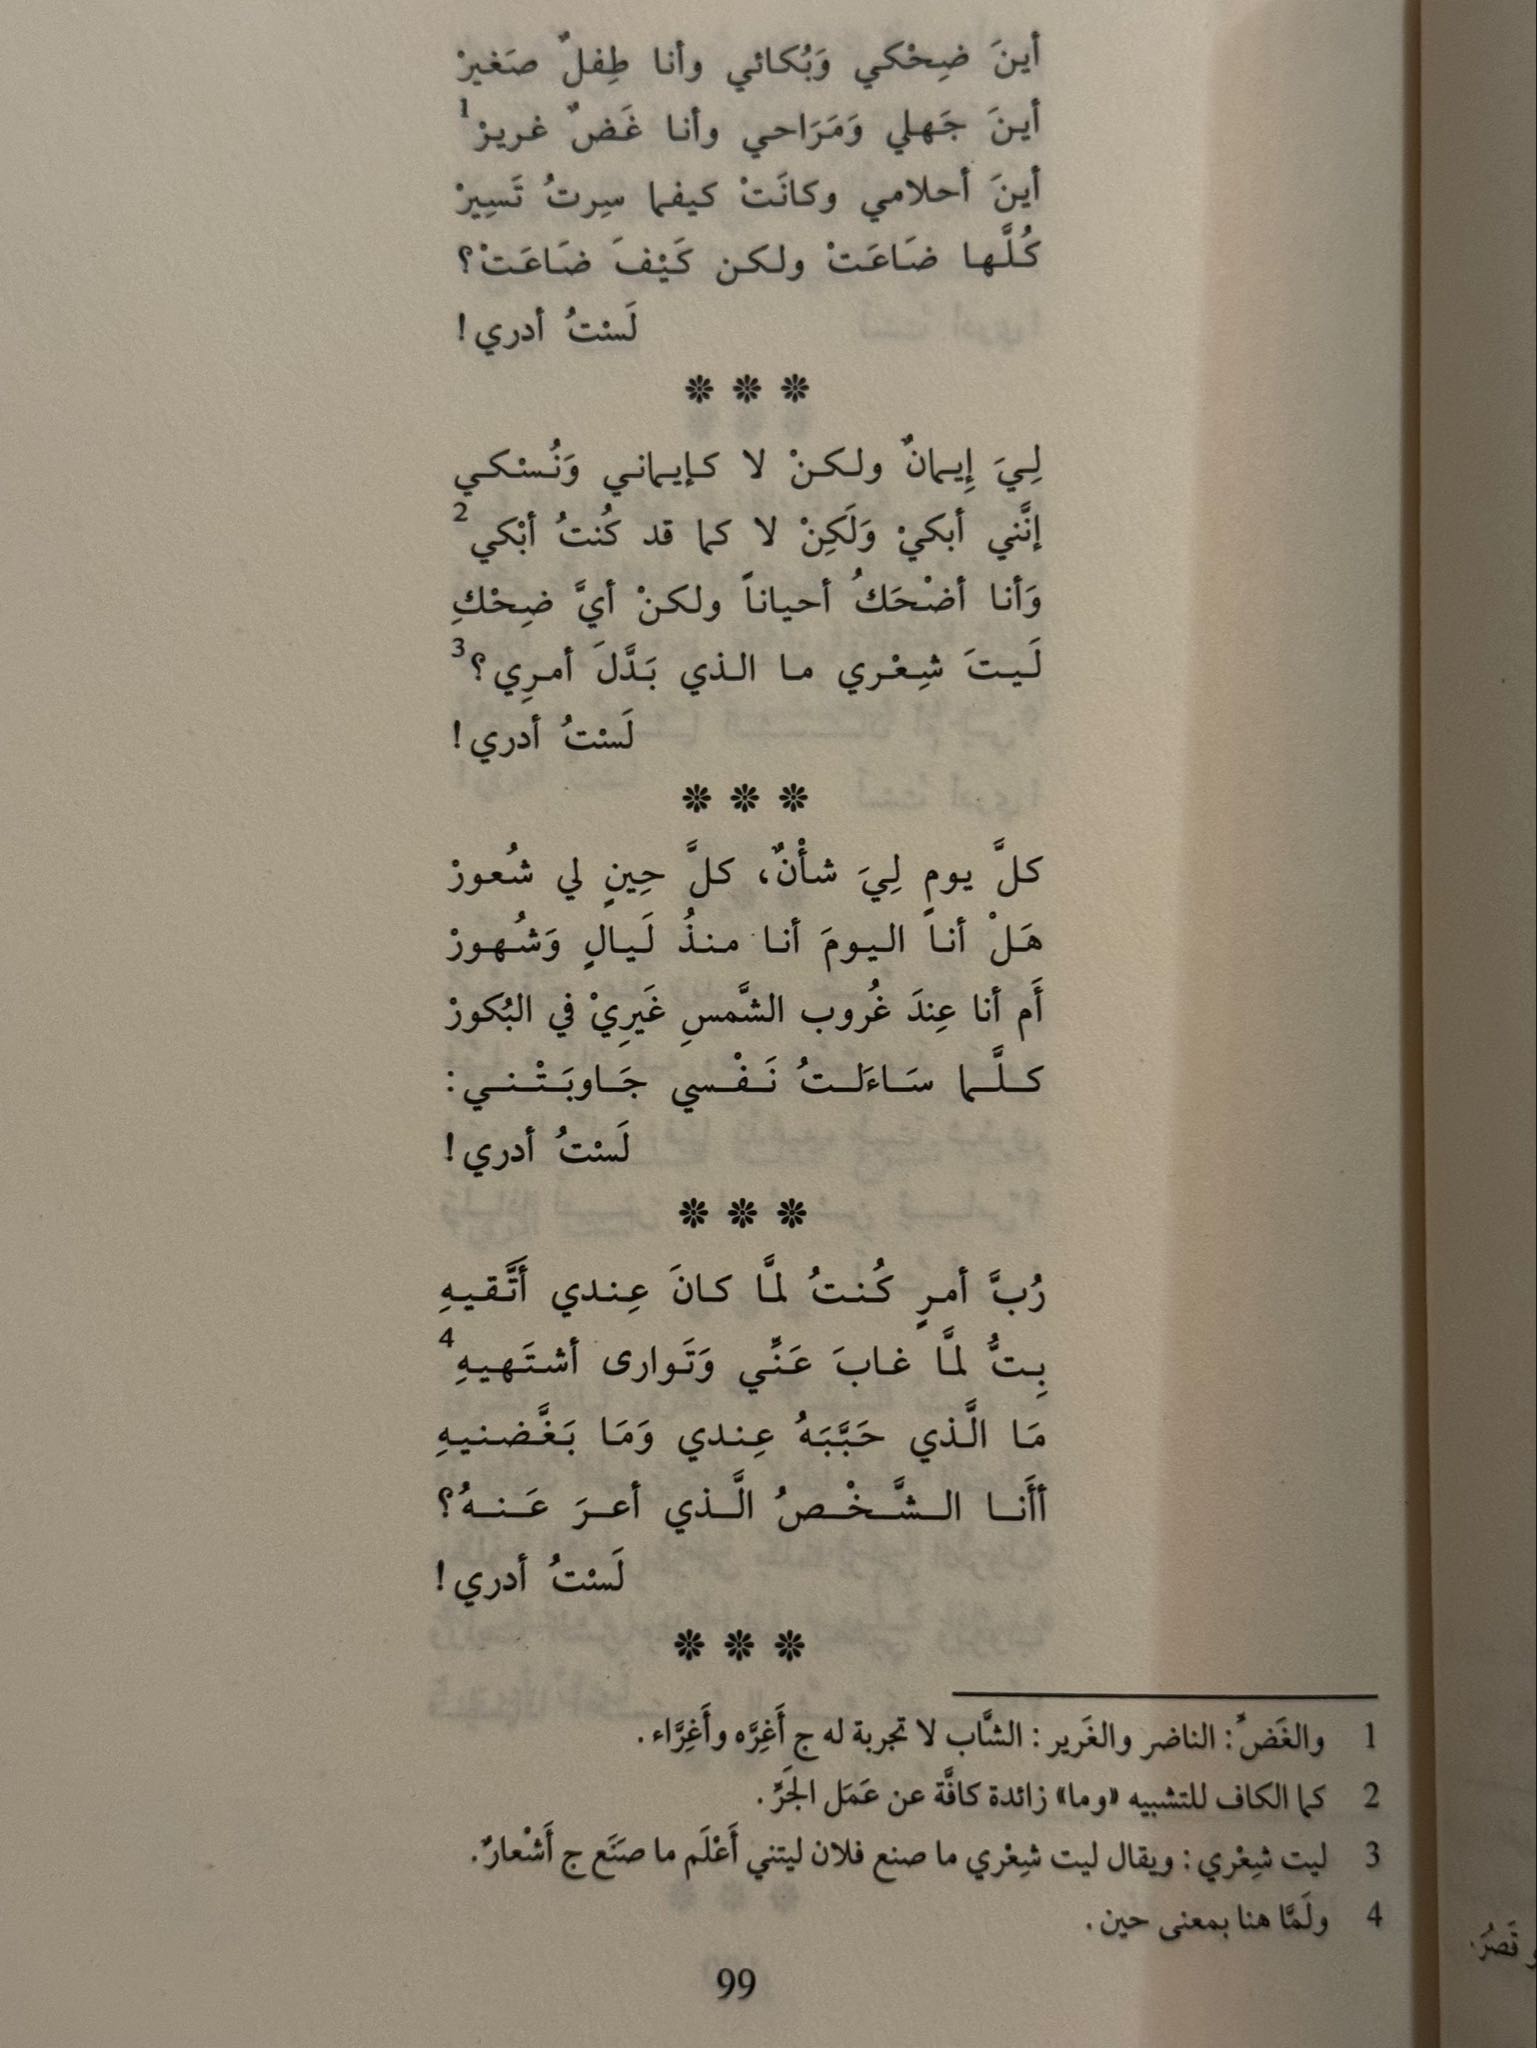 أينَ ضِحْكي وَبُكائي وأنا طِفلٌ صَغيرْ
أينَ جَهلي وَمَرَاحي وأنا غَضٌ غريرْ1
أينَ أحلامي وكانَتْ كيفما سِرتُ تَسِيرْ
كُلَّها ضَاعَتْ ولكن كَيْفَ ضَاعَتْ؟
لَسْتُ أدري!
❊ ❊ ❊
لِيَ إِيمانٌ ولكنْ لا كإيماني وَنُسْكي
إنَّني أبكيْ وَلَكِنْ لا كما قد كُنتُ أبْكي2
وَأنا أضْحَكُ أحياناً ولكنْ أيَّ ضِحْكِ
لَيتَ شِعْري ما الذي بَدَّلَ أمرِي؟3
لَسْتُ أدري!
❊ ❊ ❊
كلَّ يومٍ لِيَ شأْنٌ، كلَّ حِينٍ لي شُعورْ
هَلْ أنا اليومَ أنا منذُ لَيالٍ وَشُهورْ
أَم أنا عِندَ غُروب الشَّمسِ غَيرِيْ في البُكورْ
كلَّما سَاءَلتُ نَفْسي جَاوبَتْني:
لَسْتُ أدري!
❊ ❊ ❊
رُبَّ أمرٍ كُنتُ لمَّا كانَ عِندي أَتَّقيهِ
بِتُّ لمَّا غابَ عَنِّي وَتَوارى أشتَهيهِ4
مَا الَّذي حَبَّبَهُ عِندي وَمَا بَغَّضنيهِ
أأَنا الشَّخْصُ الَّذي أعرَ عَنهُ؟
لَسْتُ أدري!
❊ ❊ ❊
1 والغَضّ: الناضر والغَرير: الشَّاب لا تجربة له ج أَغِرَّه وأَغِرَّاء.
2 كما الكاف للتشبيه «وما» زائدة كافَّة عن عَمَل الجَرِّ.
3 ليت شِعْري: ويقال ليت شِعْري ما صنع فلان ليتني أَعْلَم ما صنَع ج أَشْعارٌ.
4 ولَمَّا هنا بمعنى حين.
99